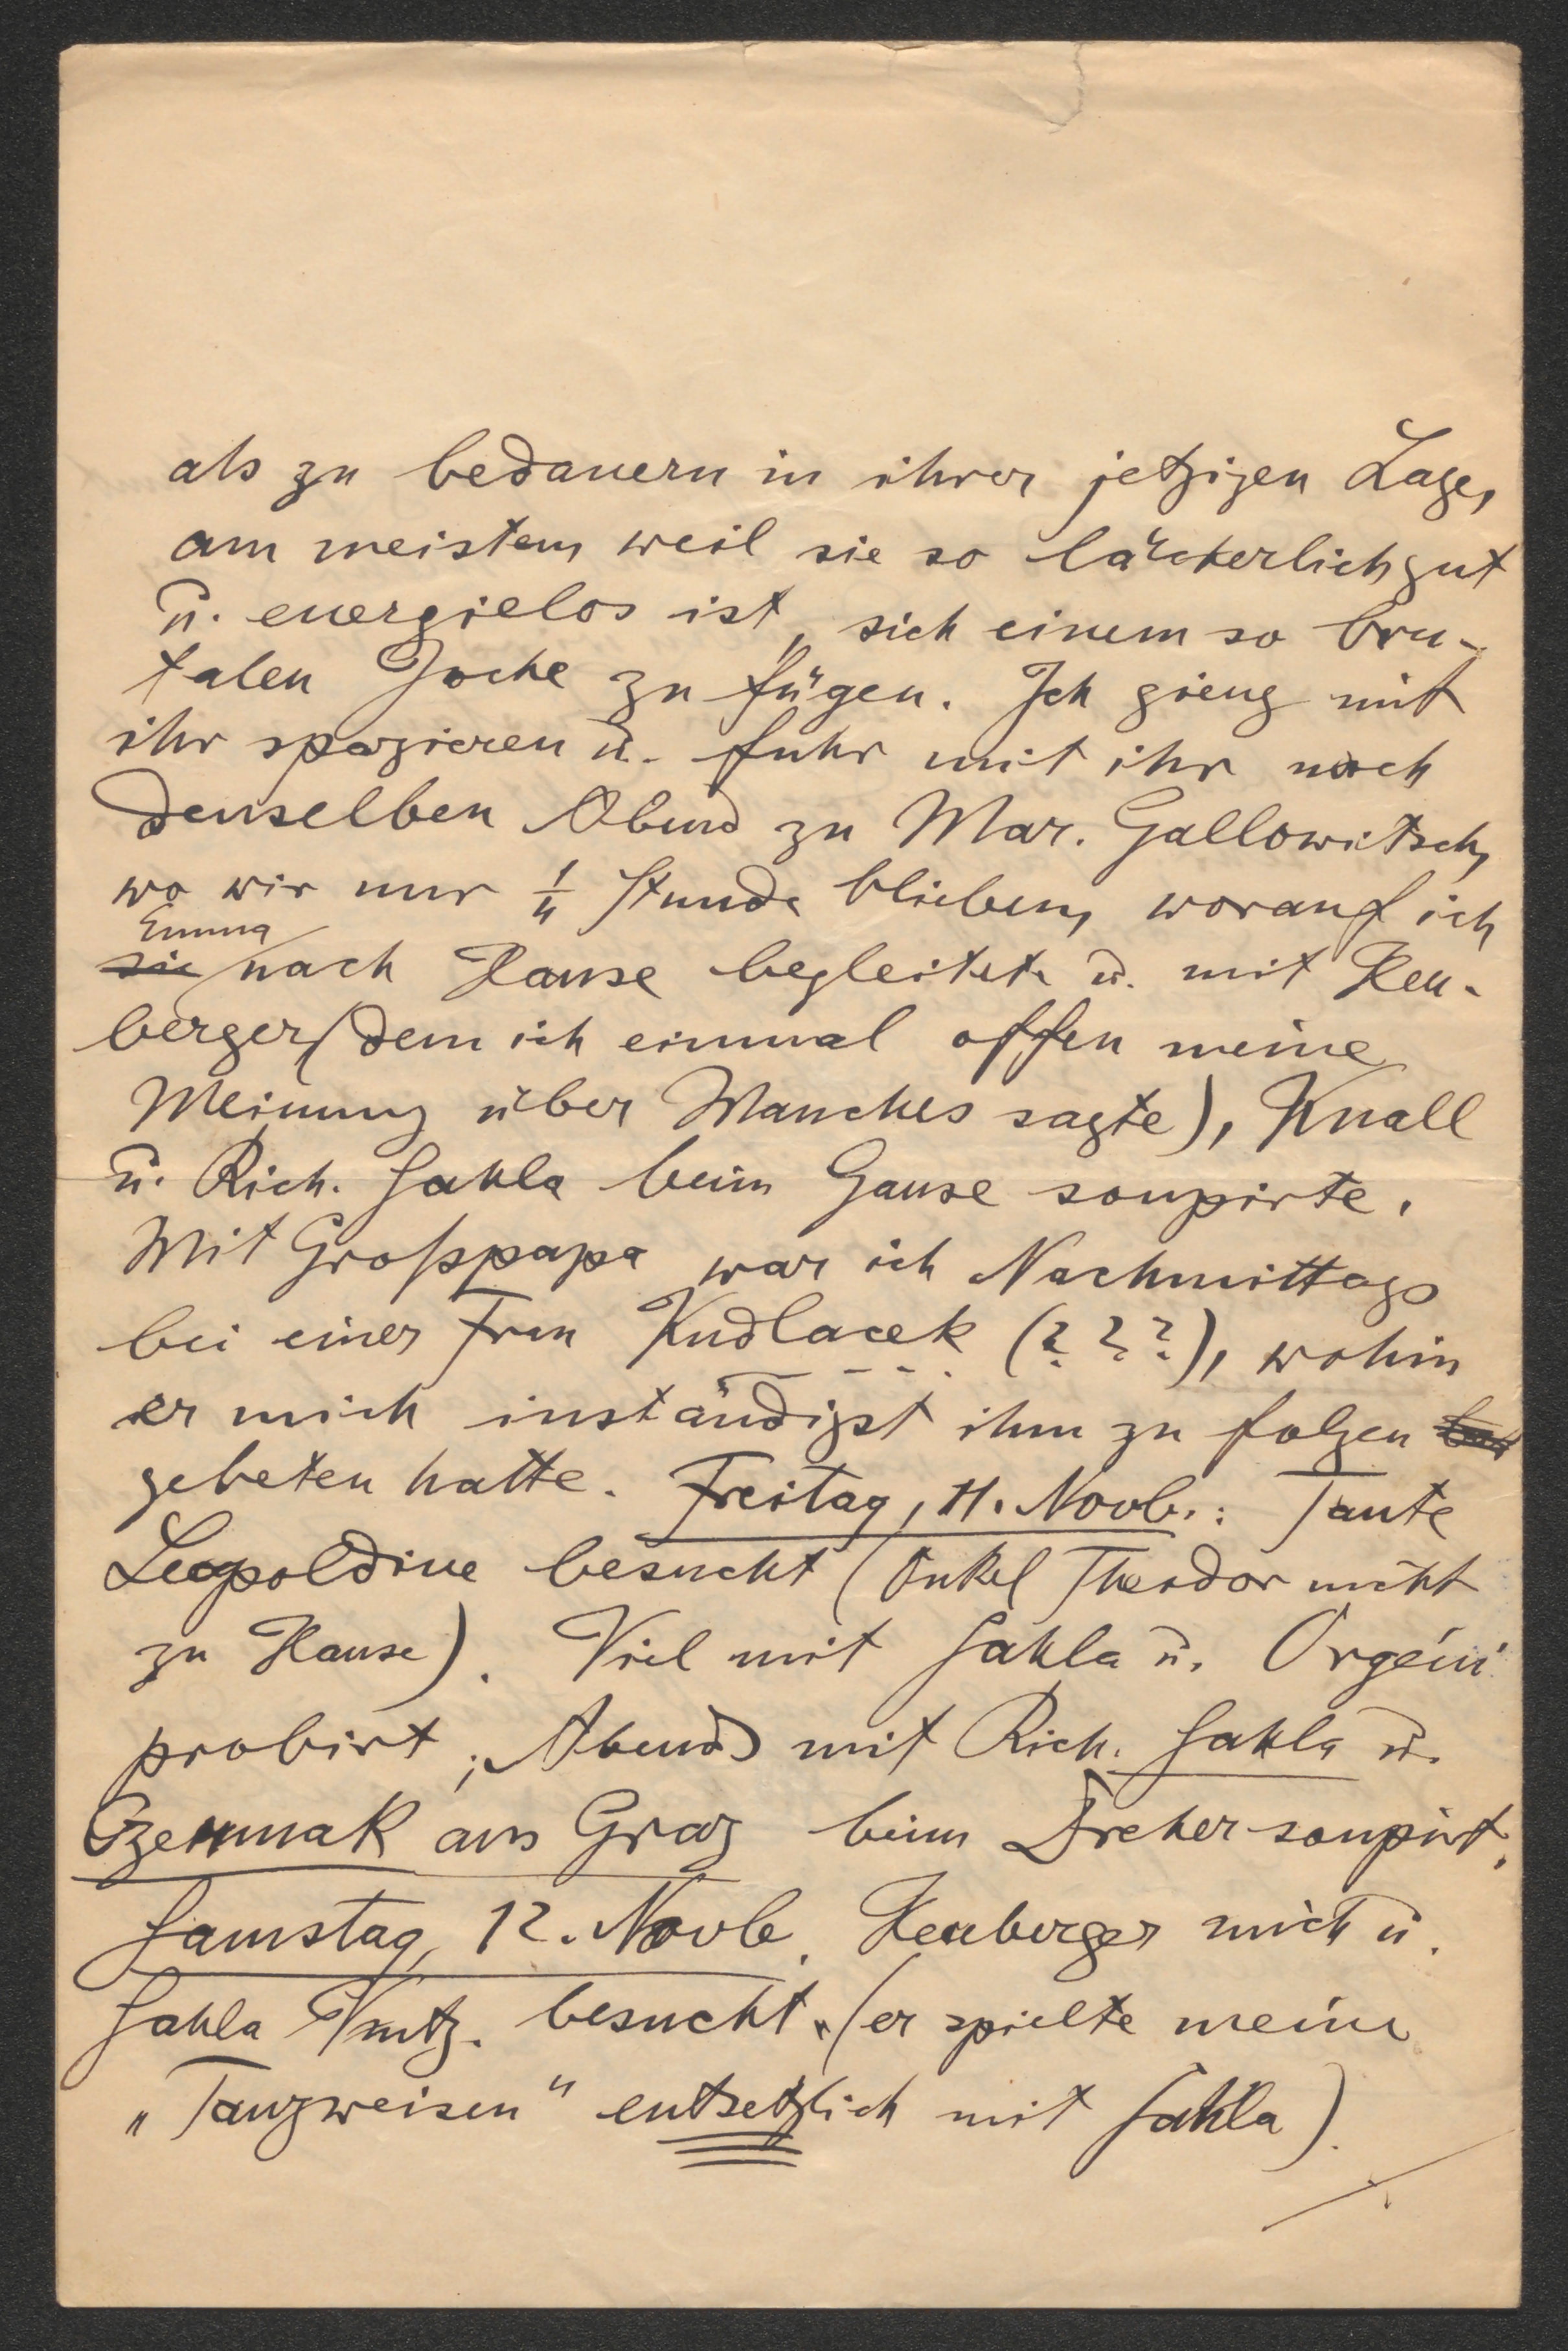 als zu bedauern in ihrer jetzigen Lage,
am meisten, weil sie so lächerlich gut
u. energielos ist, sich einem so bru-
talen Joche zu fügen. Ich gieng mit
ihr spazieren u. fuhr mit ihr noch
denselben Abend zu Mar. Gallowitsch,
wo wir nur ¼ Stunde blieben, worauf ich
Emma
sie nach Hause begleitete u. mit Heu-
berger (dem ich einmal offen meine
Meinung über Manches sagte), Knall
u. Rich. Sahla beim Gause soupirte.
Mit Großpapa war ich Nachmittags
bei einer Frau Kudlacek (? ? ?), wohin
er mich inständigst ihm zu folgen
gebeten hatte. Freitag, 11. Novb.: Tante
Leopoldine besucht (Onkel Theodor nicht
zu Hause). Viel mit Sahla u. Orgéni
probirt; Abends mit Rich. Sahla u.
Czermak aus Graz beim Dreher soupirt.
Samstag, 12. Novb. Heuberger mich u.
Sahla Vmtg. besucht. (er spielte meine
„Tanzweisen" entsetzlich mit Sahla).